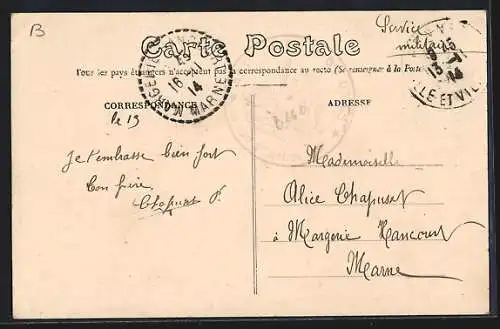 B
Carte Postale
Service
militaire
Tous les pays étrangers n'acceptent pas la correspondance au recto (Se renseigner à la Poste
CORRESPONDANCE
ADRESSE
MARNE
16
14
13
14
LE ET VIL
le 15
Je t'embrasse bien fort
ton frère,
Chapusot P.
Mademoiselle
Alice Chapusot
à Margerie Hancourt
Marne